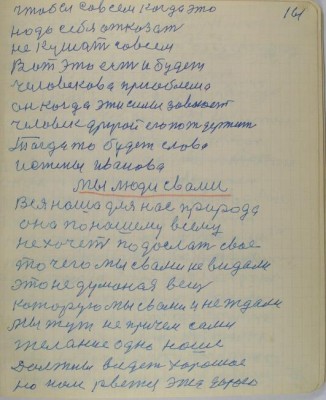 161
чтобы совсем когда это
надо себя отказат
не кушат совсем
Вот это ест и будет
человекова
он когда эти силы завоюет
человек другой его поддержит
Тогда то будет слова
истины иванова
Мы люди свами
Вся наша для нас природа
она по нашему всему
не хочет подослат свае
то чего мы свами не видали
это не думоная вещ
которую мы свами и не ждали
мы тут не причем сами
желание одно наше
Должны видет хорошое
но нам